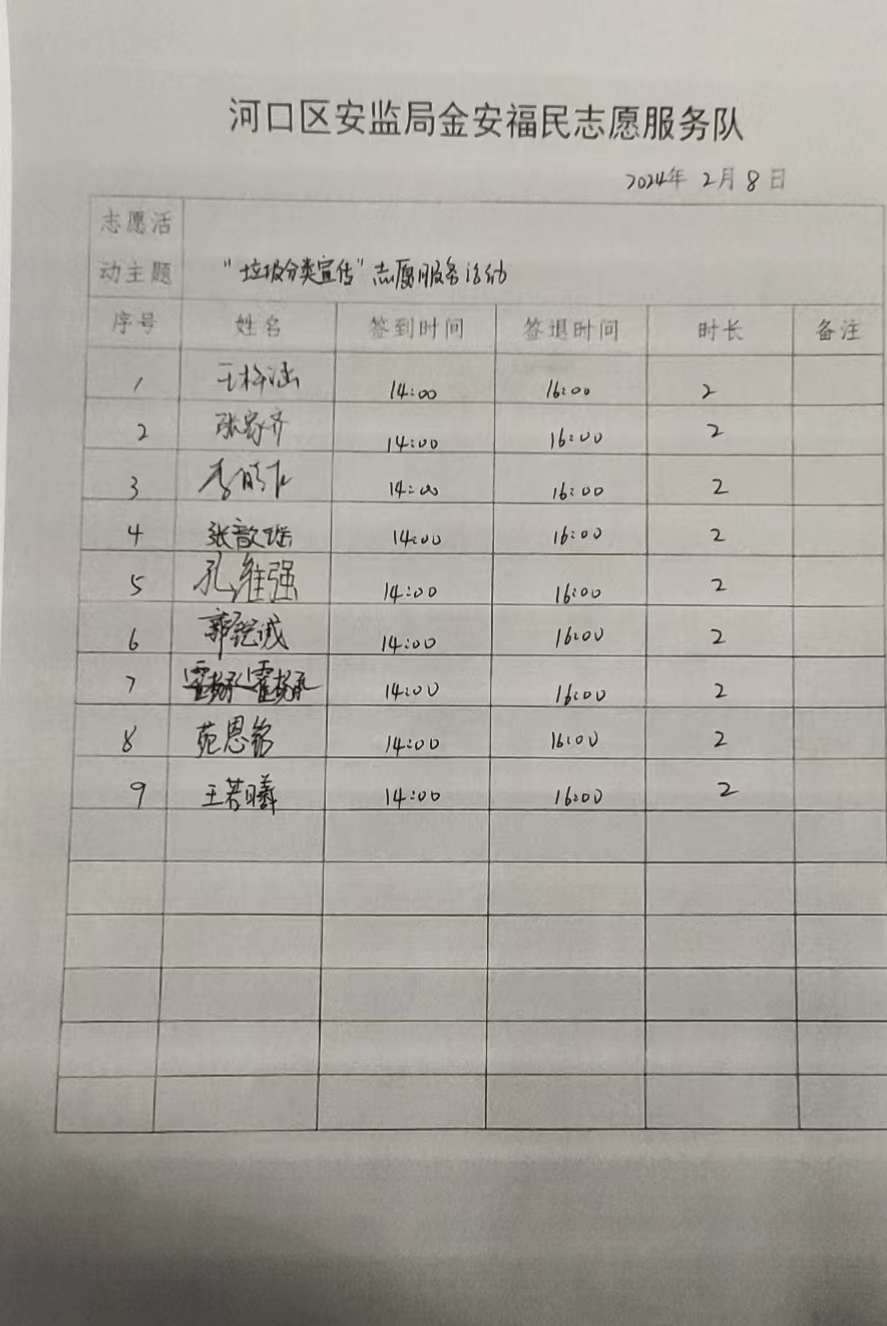 河口区安监局金安福民志愿服务队
2024年 2月 8日
志愿活
动主题 "垃圾分类宣传"志愿服务活动
序号 姓名 签到时间 签退时间 时长 备注
1 王梓涵 14:00 16:00 2
2 张家齐 14:00 16:00 2
3 李 14:00 16:00 2
4 张歆瑶 14:00 16:00 2
5 孔维强 14:00 16:00 2
6 郭锐诚 14:00 16:00 2
7 14:00 16:00 2
8 苑恩铭 14:00 16:00 2
9 王若曦 14:00 16:00 2